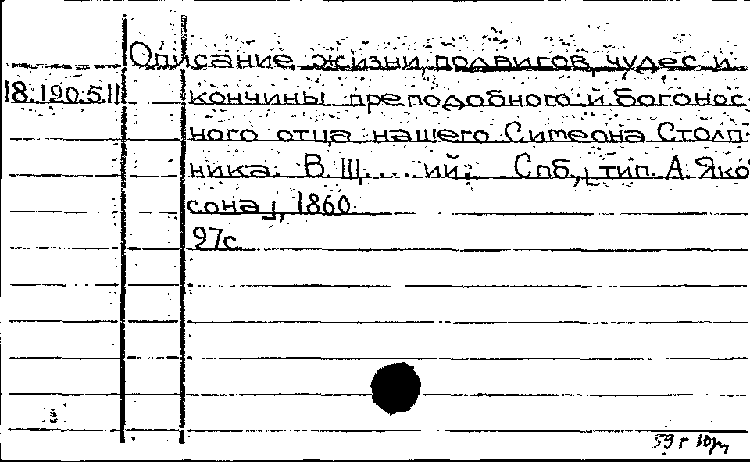 Описание жизни, подвигов, чудес и
18.190.5.11 кончины преподобного и богонос
ного отца нашего Симеона Столп
ника. В. Щ.... ий. Спб., [тип. А. Яко
сона], 1860.
97с
59 г.